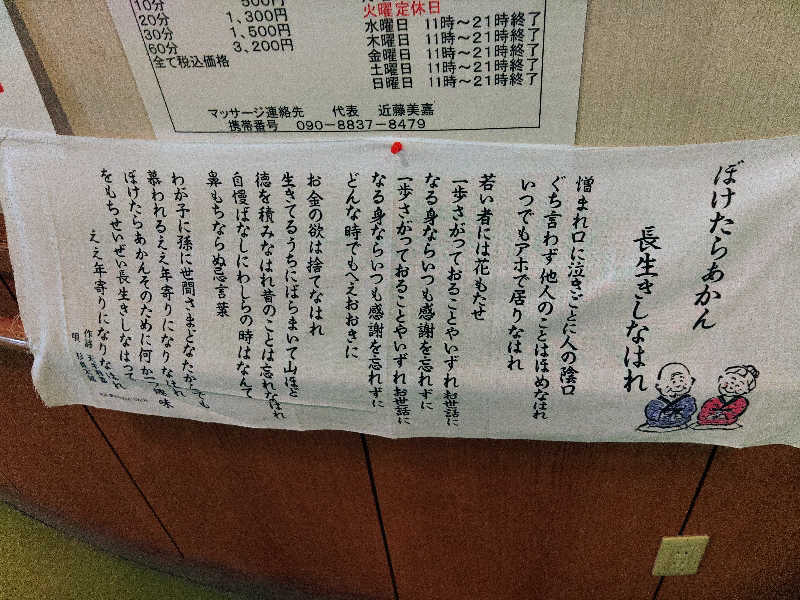 10分 500円
20分 1,300円
30分 1,500円
60分 3,200円
全て税込価格
火曜定休日
水曜日 11時～21時終了
木曜日 11時～21時終了
金曜日 11時～21時終了
土曜日 11時～21時終了
日曜日 11時～21時終了
マッサージ連絡先 代表 近藤美嘉
携帯番号 090-8837-8479
ぼけたらあかん
長生きしなはれ
憎まれ口に泣きごとに人の陰口
ぐち言わず他人のことはほめなはれ
いつでもアホで居りなはれ
若い者には花もたせ
一歩さがっておることやいずれお世話に
なる身ならいつも感謝を忘れずに
一歩さがっておることやいずれお世話に
なる身ならいつも感謝を忘れずに
どんな時でもへえおおきに
お金の欲は捨てなはれ
生きてるうちにばらまいて山ほど
徳を積みなはれ昔のことは忘れなはれ
自慢ばなしにわしらの時はなんて
鼻もちならぬ忌言葉
わが子に孫に世間さまどなたからでも
慕われるええ年寄りになりなはれ
ぼけたらあかんそのために何か一つ趣味
をもちせいぜい長生きしなはって
ええ年寄りになりなはれ
作詩 天牛
唄 杉良太郎